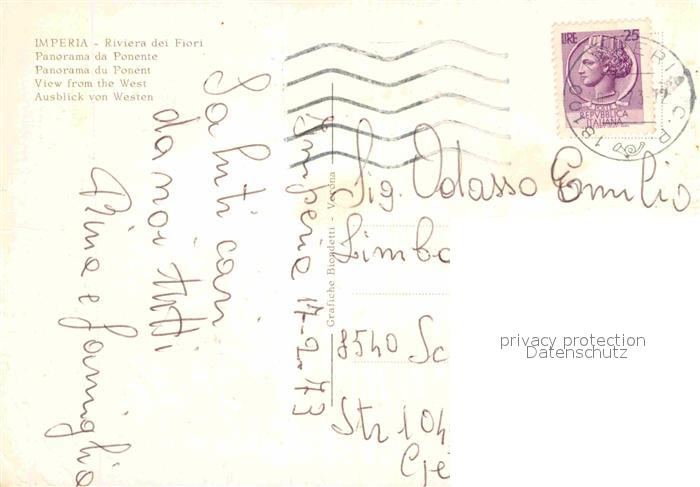 IMPERIA - Riviera dei Fiori
Panorama da Ponente
Panorama du Ponent
View from the West
Ausblick von Westen
Saluti cari
da noi tutti
Nina e famiglia
Imperia 17-2-73
Grafiche Biondetti - Verona
LIRE 25
POSTE
REPVBBLICA
ITALIANA
18100 IMPERIA C.P.
Sig. Odasso Emilio
Limbo
8540 Sc
Str 104
privacy protection
Datenschutz